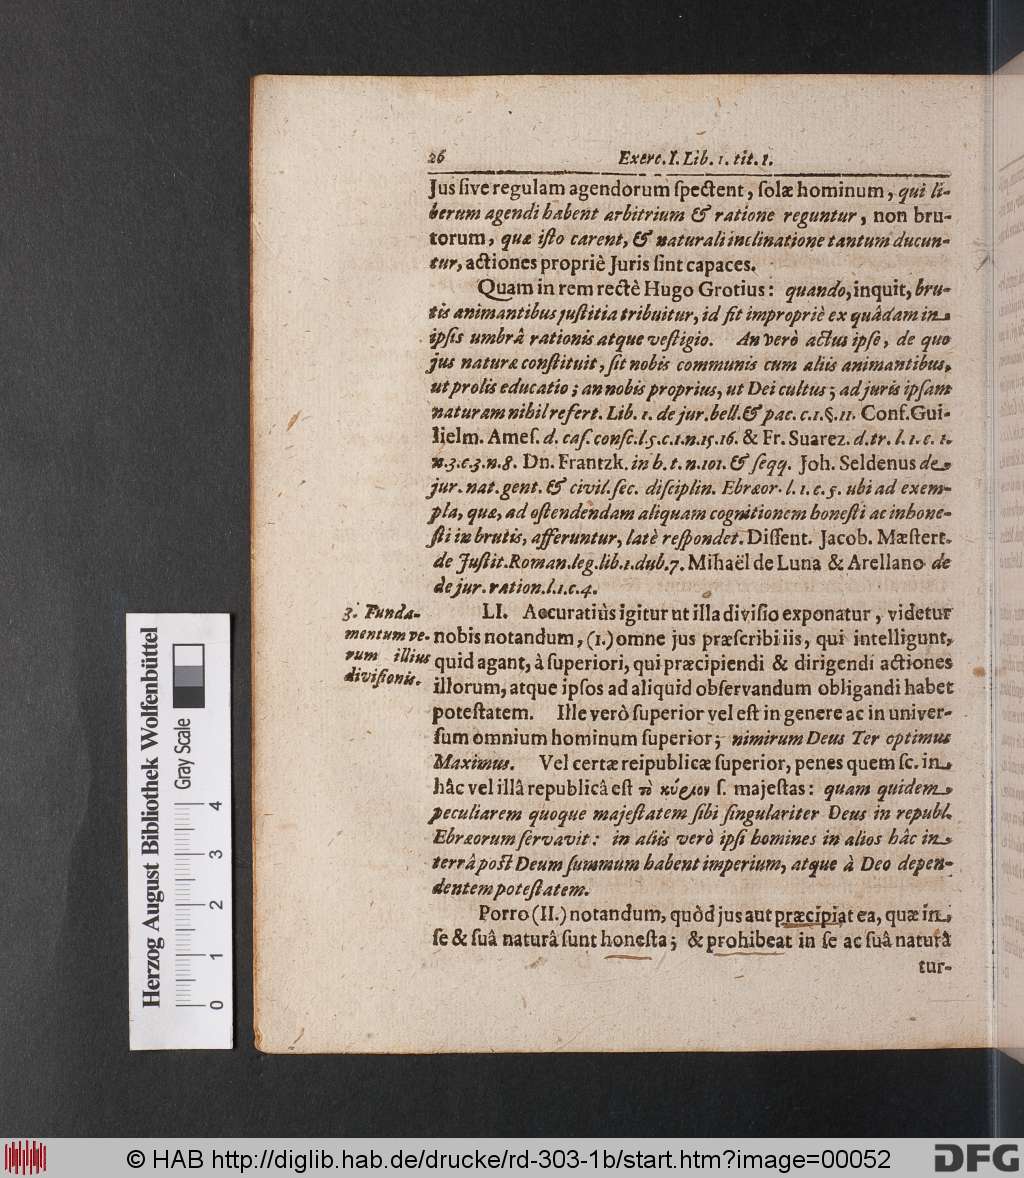 26 Exerc. I. Lib. 1. tit. 1.
Jus ſive regulam agendorum ſpectent, ſolæ hominum, qui li-
berum agendi habent arbitrium & ratione reguntur, non bru-
torum, quæ iſto carent, & naturali inclinatione tantum ducun-
tur, actiones propriè Juris ſint capaces.
Quam in rem rectè Hugo Grotius: quando, inquit, bru-
tis animantibus juſtitia tribuitur, id fit impropriè ex quâdam in
ipſis umbrâ rationis atque veſtigio. An verò actus ipſe, de quo
jus naturæ conſtituit, ſit nobis communis cum aliis animantibus,
ut prolis educatio; an nobis proprius, ut Dei cultus; ad juris ipſam
naturam nihil refert. Lib. 1. de jur. bell. & pac. c. 1. §. 11. Conf. Gui-
lielm. Ameſ. d. caſ. conſc. l. 5. c. 1. n. 15. 16. & Fr. Suarez. d. tr. l. 1. c. 1.
n. 3. c. 3. n. 8. Dn. Frantzk. in b. t. n. 101. & ſeqq. Joh. Seldenus de
jur. nat. gent. & civil. ſec. diſciplin. Ebræor. l. 1. c. 5. ubi ad exem-
pla, quæ, ad oſtendendam aliquam cognitionem honeſti ac inhone-
ſti in brutis, afferuntur, latè reſpondet. Diſſent. Jacob. Mæſtert.
de Juſtit. Roman. leg. lib. 1. dub. 7. Mihaël de Luna & Arellano de
de jur. ration. l. 1. c. 4.
3. Funda-
mentum ve-
rum illius
diviſionis.
LI. Accuratiùs igitur ut illa diviſio exponatur, videtur
nobis notandum, (1.) omne jus præſcribi iis, qui intelligunt,
quid agant, à ſuperiori, qui præcipiendi & dirigendi actiones
illorum, atque ipſos ad aliquid obſervandum obligandi habet
poteſtatem. Ille verò ſuperior vel eſt in genere ac in univer-
ſum omnium hominum ſuperior; nimirum Deus Ter optimus
Maximus. Vel certæ reipublicæ ſuperior, penes quem ſc. in
hâc vel illâ republicâ eſt τὸ κύριον ſ. majeſtas: quam quidem
peculiarem quoque majeſtatem ſibi ſingulariter Deus in republ.
Ebræorum ſervavit: in aliis verò ipſi homines in alios hâc in
terrâ poſt Deum ſummum habent imperium, atque à Deo depen-
dentem poteſtatem.
Porro (II.) notandum, quòd jus aut præcipiat ea, quæ in
ſe & ſuâ naturâ ſunt honeſta; & prohibeat in ſe ac ſuâ naturâ
tur-
Herzog August Bibliothek Wolfenbüttel
Gray Scale
0 1 2 3 4
© HAB http://diglib.hab.de/drucke/rd-303-1b/start.htm?image=00052
DFG